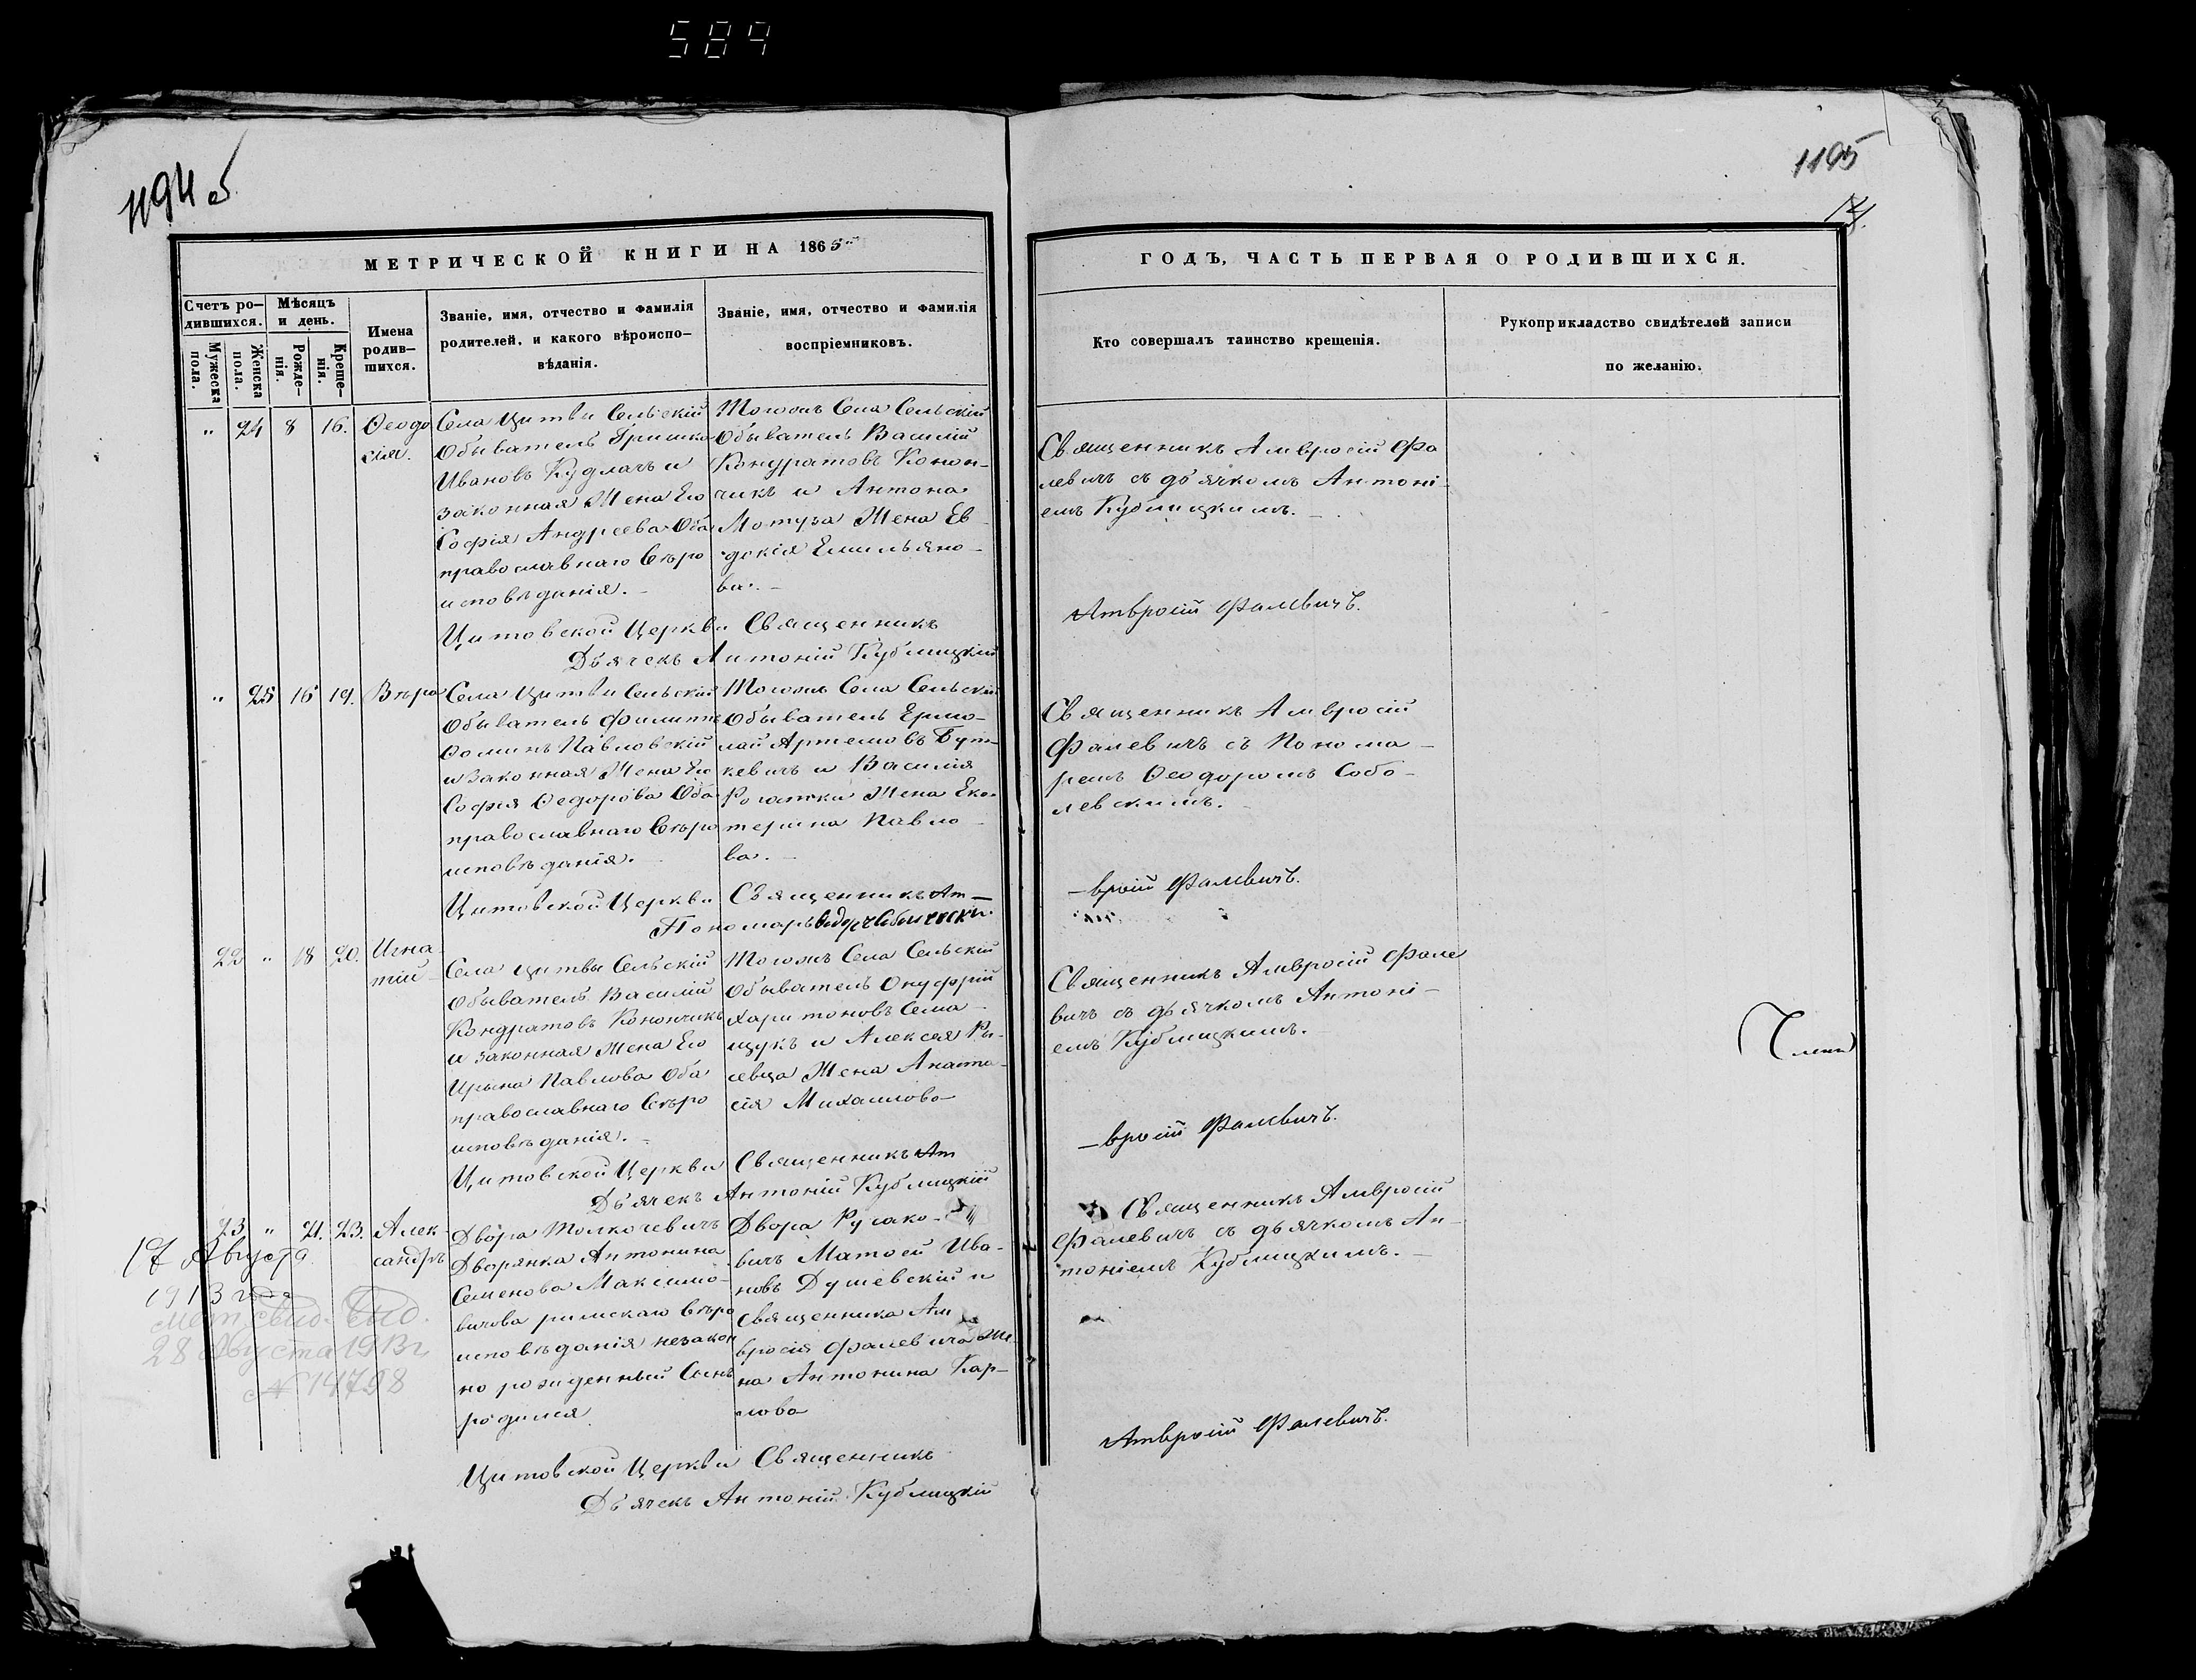 584
1194 об
1195
МЕТРИЧЕСКОЙ КНИГИ НА 1865
Счетъ ро-
дившихся.
Мѣсяцъ
и день.
Мужеска
пола.
Женска
пола.
Рожде-
нія.
Креще-
нія.
Имена
родив-
шихся.
Званіе, имя, отчество и фамилія
родителей, и какого вѣроиспо-
вѣданія.
Званіе, имя, отчество и фамилія
воспріемниковъ.
" 24 8 16. Ѳеодо
сія.
Села Цитвы Сельскій
Обыватель Гришко
Ивановъ Кудлачъ и
законная Жена Его
Софія Андреева Оба
православнаго Вѣро
исповѣданія.
Тогожъ Села Сельскій
Обыватель Василій
Кондратовъ Конон-
чикъ и Антона
Мотуза Жена Ев
докія Емильяно-
ва.
Цитовской Церкви Священникъ
Дьячекъ Антоній Кублицкій
" 25 16 19. Вѣра
Села Цитвы Сельскій
Обыватель Филиппъ
Ѳоминъ Павловскій
и законная Жена Его
Софія Ѳедорова Оба
православнаго Вѣро
исповѣданія.
Тогожъ Села Сельскій
Обыватель Ермо-
лай Артемовъ Бут-
кевичъ и Василія
Жена Ека-
терина Павло-
ва.
Цитовской Церкви Священникъ Ам-
Пономарь
22 " 18 20. Игна
тій
Села Цитвы Сельскій
Обыватель Василій
Кондратовъ Конончикъ
и законная Жена Его
Ирына Павлова Оба
православнаго Вѣро
исповѣданія.
Тогожъ Села Сельскій
Обыватель Онуфрій
Харитоновъ Сема-
щукъ и Алексея Ры-
севца Жена Анаста-
сія Михаилова
Цитовской Церкви Священникъ Ам
Дьячекъ Антоній Кублицкій
23 " 21. 23. Алек
сандръ
Двора Толкачевичъ
Дворянка Антонина
Семенова Максимо-
вичова римскаго вѣро
исповѣданія незакон
но рожденный Сынъ
родился
Двора Русако-
вичъ Матѳей Ива-
новъ Душевскій и
Священника Ам
вросія Фалевича Же-
на Антонина Кар-
лова
17 Августа
1913 года
мет. свид. выд.
28 Августа 1913 г
№ 14798
Цитовской Церкви Священникъ
Дьячекъ Антоній Кублицкій
ГОДЪ, ЧАСТЬ ПЕРВАЯ О РОДИВШИХСЯ.
Кто совершалъ таинство крещенія.
Рукоприкладство свидѣтелей записи
по желанію.
Священникъ Амвросій Фа
левичъ съ дьячкомъ Антоні-
емъ Кублицкимъ.
Амвросій Фалевичъ.
Священникъ Амвросій
Фалевичъ съ Понома-
ремъ Ѳеодоромъ Собо-
левскимъ.
-вросій Фалевичъ.
Священникъ Амвросій Фале
вичъ съ дьячкомъ Антоні-
емъ Кублицкимъ.
-вросій Фалевичъ.
Священникъ Амвросій
Фалевичъ съ дьячкомъ Ан-
тоніемъ Кублицкимъ.
Амвросій Фалевичъ.